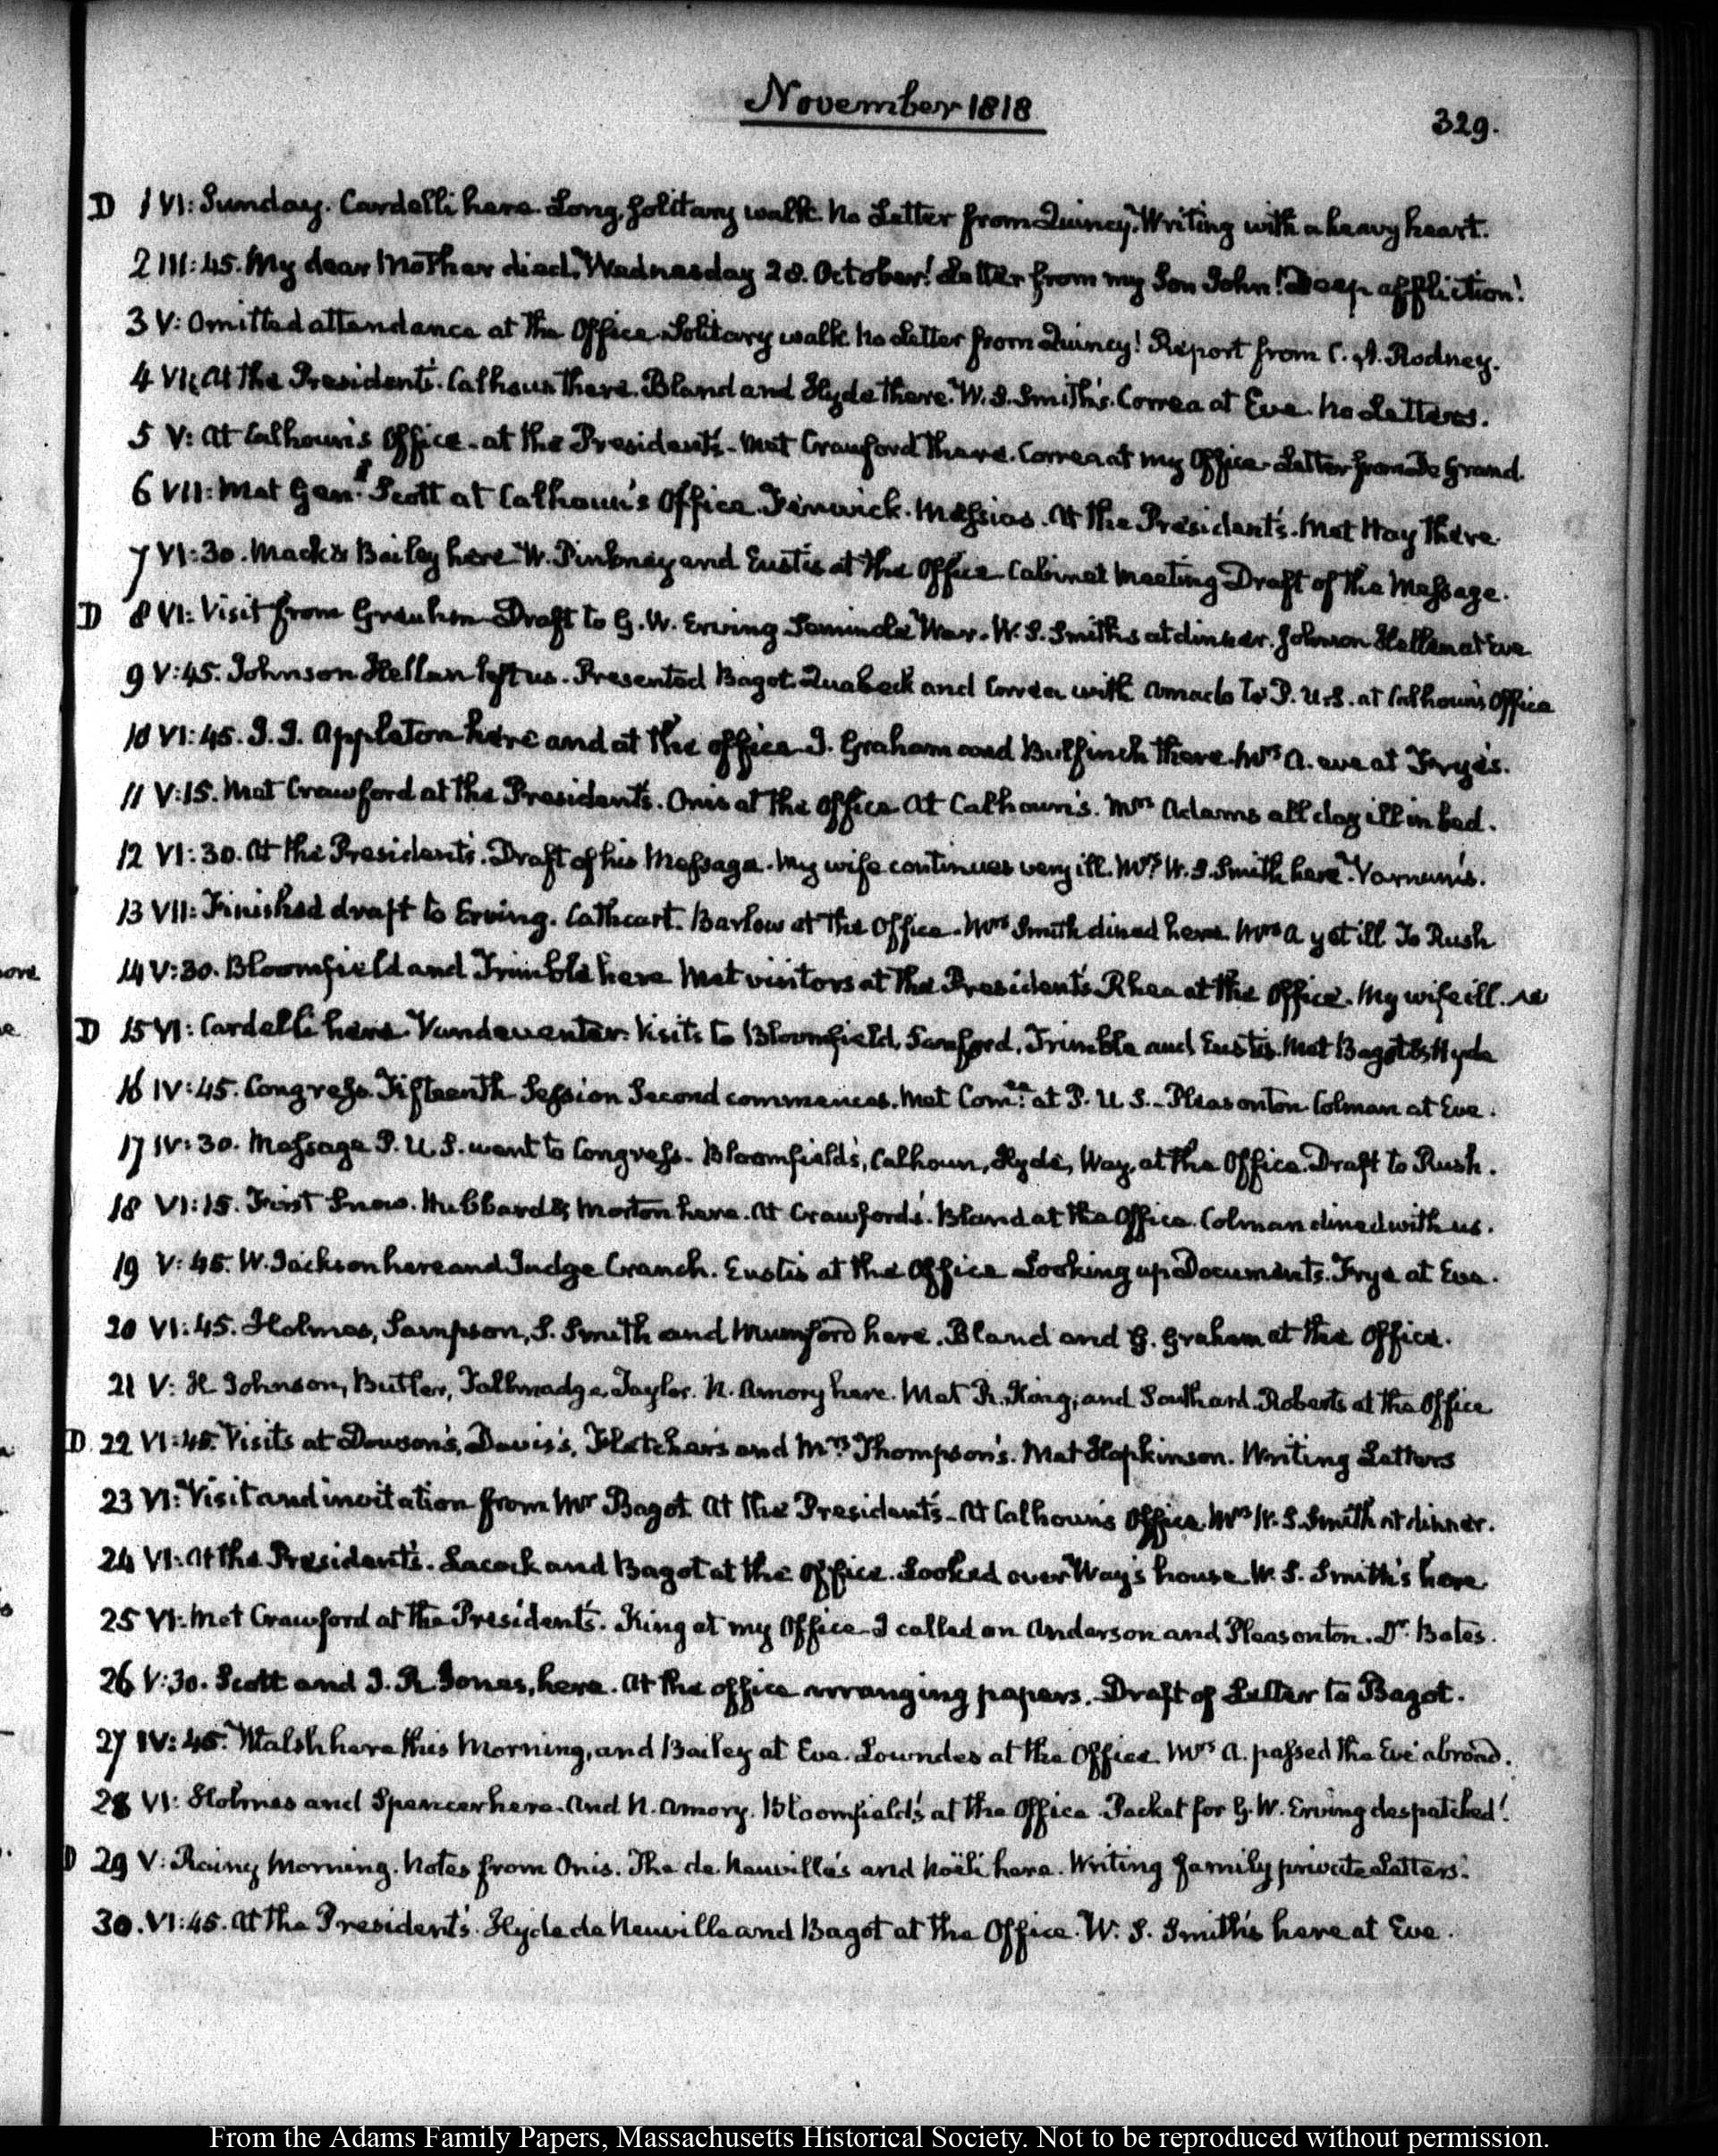 November 1818
329.
D 1 VI: Sunday. Cardelli here. Long, solitary walk. No Letter from Quincy. Writing with a heavy heart.
2 III:45. My dear Mother died, Wednesday 28. October! Letter from my Son John! Deep affliction!
3 V: Omitted attendance at the Office. Solitary walk. No Letter from Quincy! Report from C. A. Rodney.
4 VI: At the President's. Calhoun there. Bland and Hyde there. W. S. Smith's. Correa at Eve. No Letters.
5 V: At Calhoun's Office. at the President's. Met Crawford there. Correa at my Office. Letter from De Grand.
6 VII: Met Genl. Scott at Calhoun's Office. Fenwick. Messias. At the President's. Met Hay there.
7 VI:30. Mack & Bailey here. W. Pinkney and Eustis at the Office. Cabinet Meeting Draft of the Message.
D 8 VI: Visit from Greuhm. Draft to G. W. Erving. Seminole War. W. S. Smiths at dinner. Johnson Hellen at Eve
9 V:45. Johnson Hellen left us. Presented Bagot. Quabeck and Correa with Amado to P. U.S. at Calhoun's Office
10 VI:45. J. J. Appleton here and at the office. J. Graham and Bulfinch there. Mrs A. eve at Frye's.
11 V:15. Met Crawford at the President's. Onis at the Office. At Calhoun's. Mrs Adams all day ill in bed.
12 VI:30. At the President's. Draft of his Message. My wife continues very ill. Mrs W. S. Smith here. Varnum's.
13 VII: Finished draft to Erving. Cathcart. Barlow at the Office. Mrs Smith dined here. Mrs A yet ill To Rush
14 V:30. Bloomfield and Trimble here. Met visitors at the President's. Rhea at the Office. My wife ill.
D 15 VI: Cardelli here. Vandeventer. Visits to Bloomfield, Sanford, Trimble and Eustis. Met Bagot & Hyde
16 IV:45. Congress. Fifteenth. Session Second commences. Met Comee. at P. U S. Pleasonton Colman at Eve.
17 IV:30. Message P. U. S. went to Congress. Bloomfield's, Calhoun, Hyde, Way, at the Office. Draft to Rush.
18 VI:15. First Snow. Hubbard & Morton here. At Crawford's. Bland at the Office. Colman dined with us.
19 V:45. W. Jackson here and Judge Cranch. Eustis at the Office. Looking up Documents. Frye at Eve.
20 VI:45. Holmes, Sampson, S. Smith and Mumford here. Bland and G. Graham at the Office.
21 V: H Johnson, Butler, Tallmadge, Taylor. N. Amory here. Met R. King, and Southard. Roberts at the Office
D 22 VI:45. Visits at Dowson's, Davis's, Fletcher's and Mrs. Thompson's. Met Hopkinson. Writing Letters
23 VI: Visit and invitation from Mr Bagot. At the President's. At Calhoun's Office. Mrs W. S. Smith at dinner.
24 VI: At the President's. Lacock and Bagot at the Office. Looked over Way's house. W. S. Smith's here
25 VI: Met Crawford at the President's. King at my Office. I called on Anderson and Pleasonton. Dr. Bates.
26 V:30. Scott and J. R. Jones, here. At the office arranging papers. Draft of Letter to Bagot.
27 IV:45. Walsh here this Morning, and Bailey at Eve. Lowndes at the Office. Mrs A. passed the Eve abroad.
28 VI: Holmes and Spencer here. And N. Amory. Bloomfield's at the Office. Packet for G. W. Erving despatched!
D 29 V: Rainy Morning. Notes from Onis. The de Neuville's and Noëli here. Writing family private Letters.
30. VI:45. At the President's. Hyde de Neuville and Bagot at the Office. W. S. Smith's here at Eve.
From the Adams Family Papers, Massachusetts Historical Society. Not to be reproduced without permission.